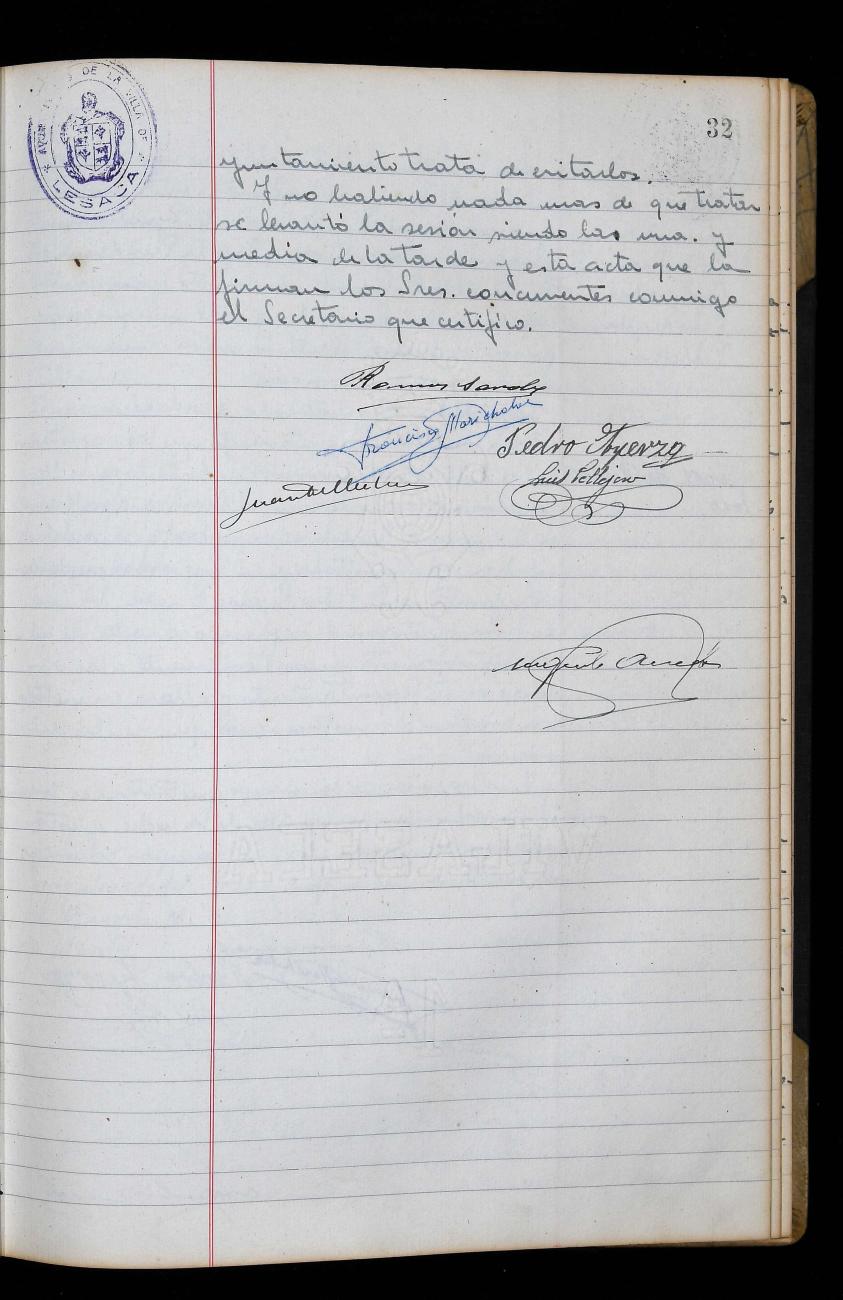 DE LA VILLA DE
LESACA
32
yuntamiento trata de evitarlos.
Y no habiendo nada mas de que tratar
se levantó la sesión siendo las una. y
media de la tarde y esta acta que la
firman los Sres. concurrentes conmigo
el Secretario que certifico.
Ramon
Francisco
Pedro Ayerza
Luis Pellejero
Juan